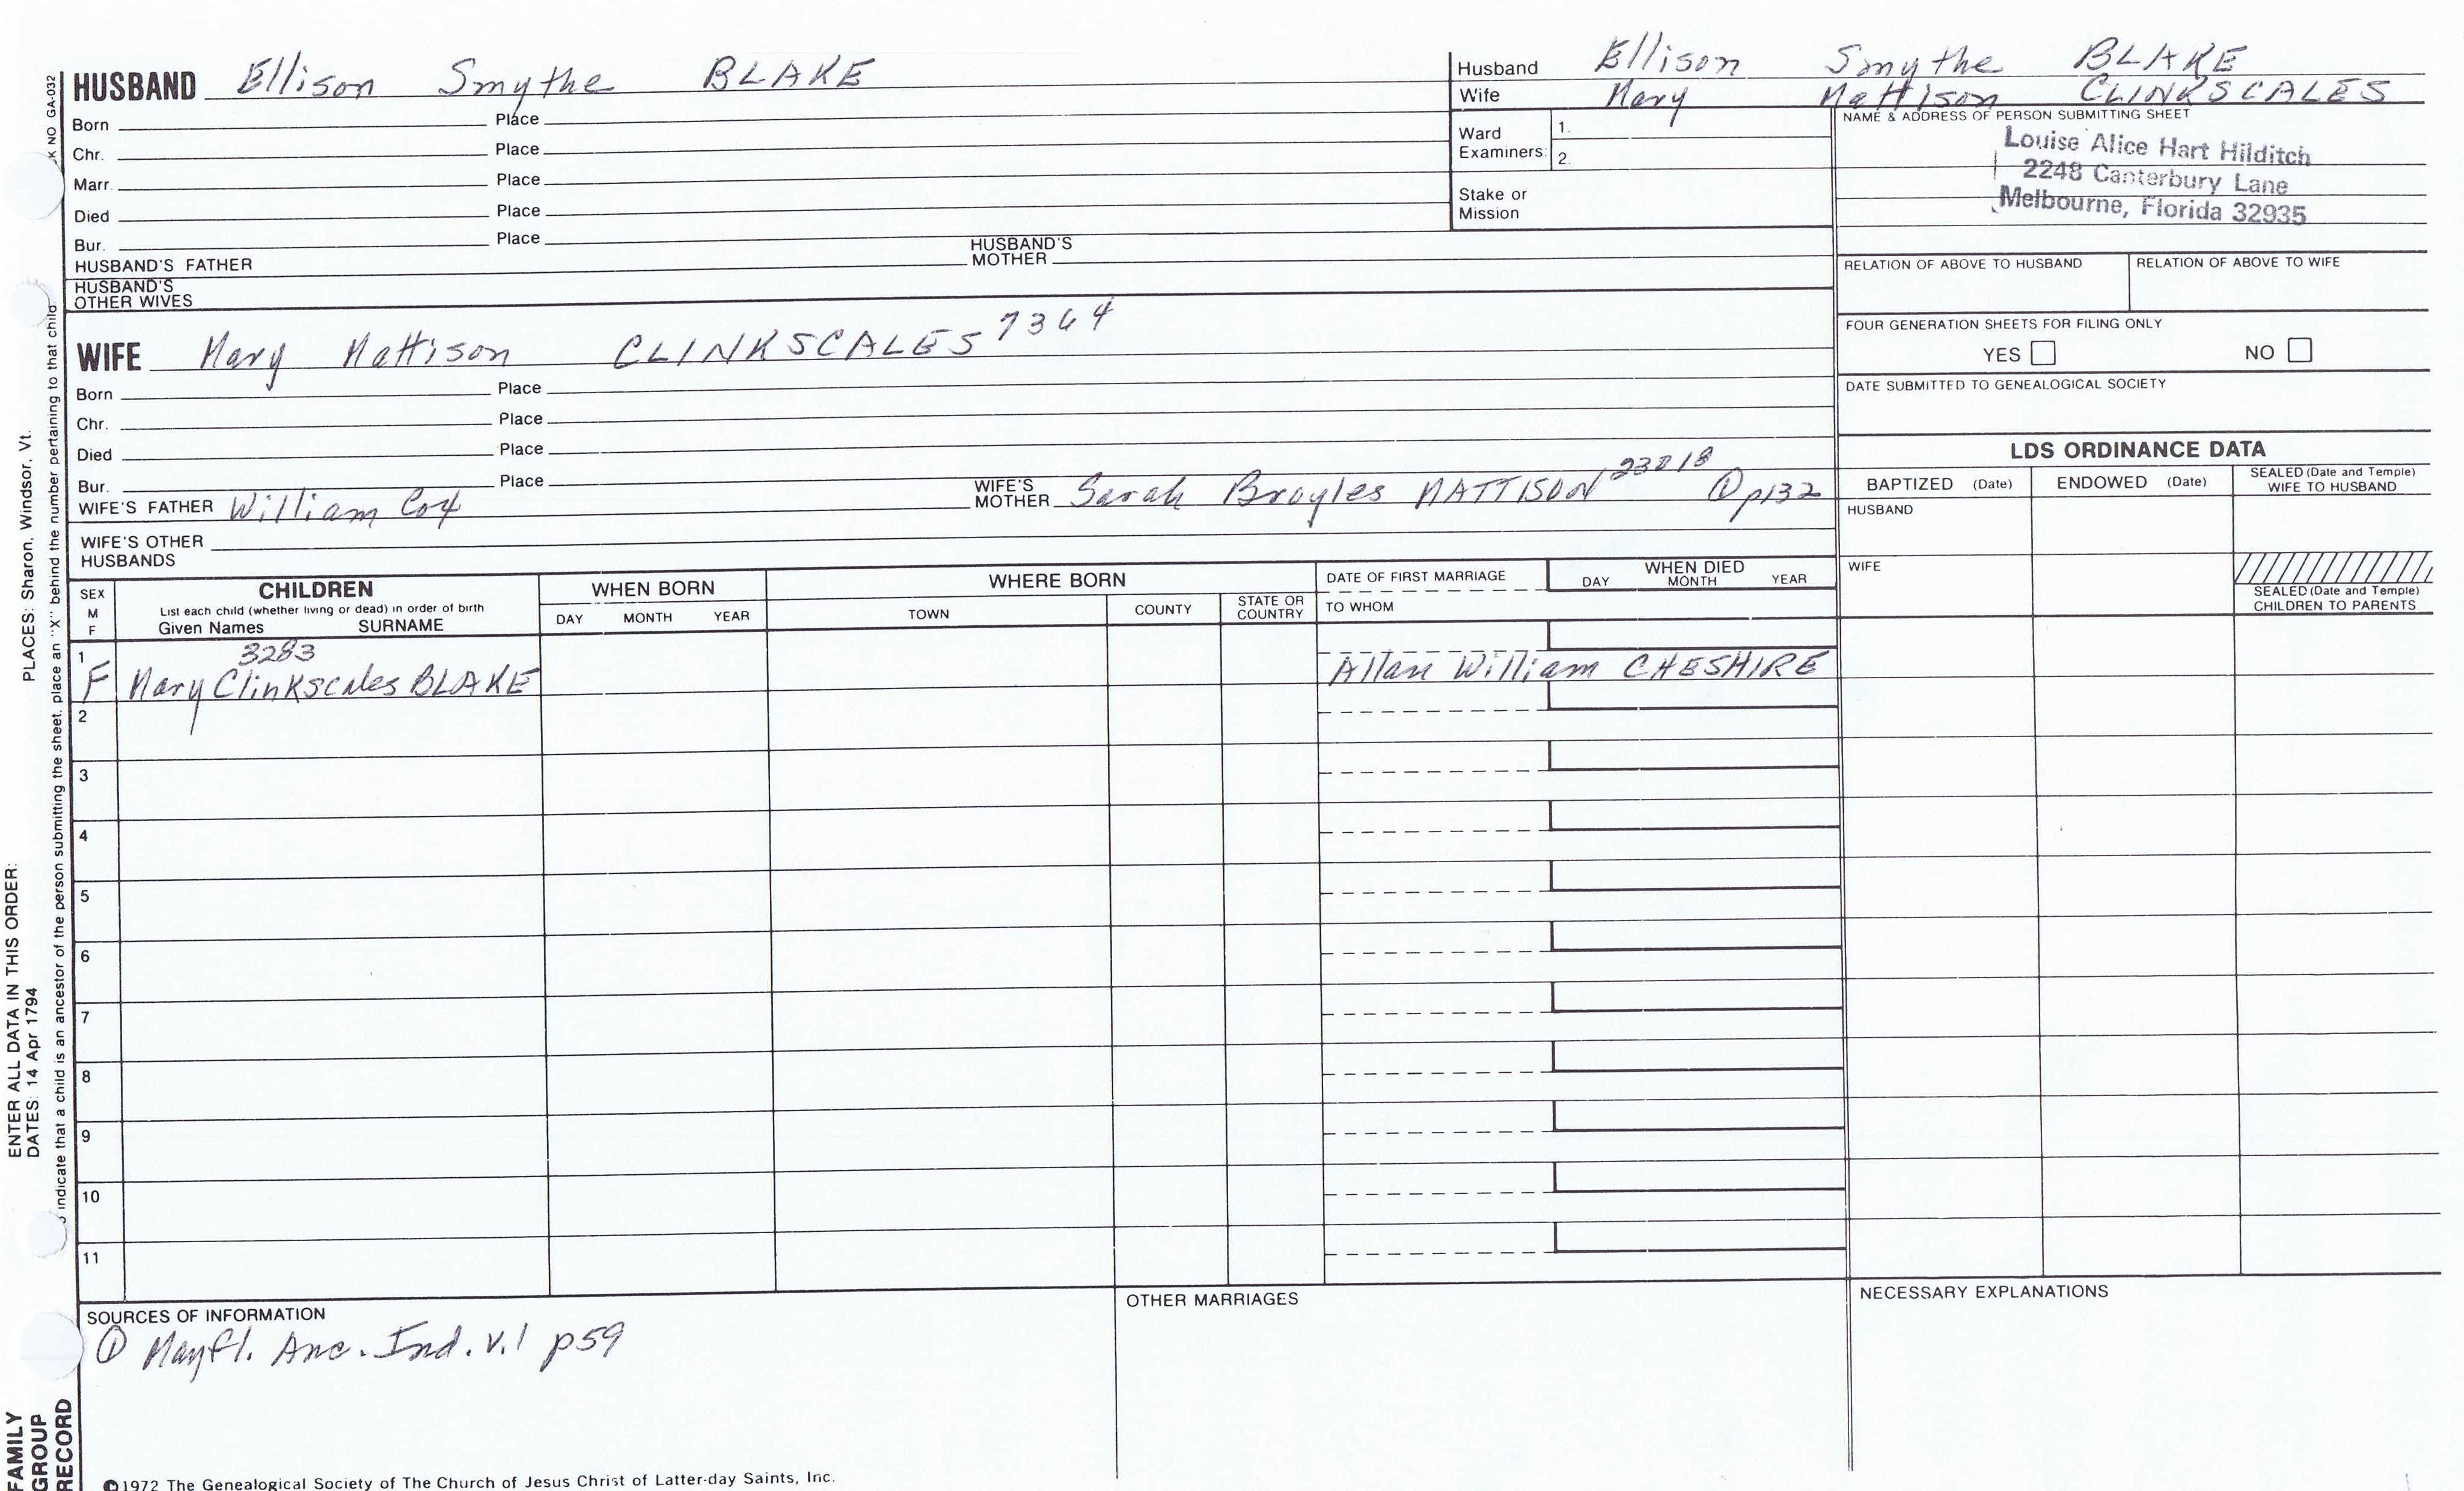 HUSBAND Ellison Smythe BLAKE
Born Place
Chr. Place
Marr. Place
Died Place
Bur. Place
HUSBAND'S FATHER HUSBAND'S MOTHER
HUSBAND'S OTHER WIVES
WIFE Mary Mattison CLINKSCALES 7364
Born Place
Chr. Place
Died Place
Bur. Place
WIFE'S FATHER William Cox WIFE'S MOTHER Sarah Broyles MATTISON 23818 ① p132
WIFE'S OTHER HUSBANDS
Husband Ellison Smythe BLAKE
Wife Mary Mattison CLINKSCALES
Ward Examiners: 1.
2.
Stake or Mission
NAME & ADDRESS OF PERSON SUBMITTING SHEET
Louise Alice Hart Hilditch
2248 Canterbury Lane
Melbourne, Florida 32935
RELATION OF ABOVE TO HUSBAND RELATION OF ABOVE TO WIFE
FOUR GENERATION SHEETS FOR FILING ONLY
YES NO
DATE SUBMITTED TO GENEALOGICAL SOCIETY
LDS ORDINANCE DATA
BAPTIZED (Date) ENDOWED (Date) SEALED (Date and Temple) WIFE TO HUSBAND
HUSBAND
WIFE
SEALED (Date and Temple) CHILDREN TO PARENTS
SEX M F
CHILDREN
List each child (whether living or dead) in order of birth
Given Names SURNAME
WHEN BORN
DAY MONTH YEAR
WHERE BORN
TOWN COUNTY STATE OR COUNTRY
DATE OF FIRST MARRIAGE
TO WHOM
WHEN DIED
DAY MONTH YEAR
1 3283
F Mary Clinkscales BLAKE Allan William CHESHIRE
2
3
4
5
6
7
8
9
10
11
SOURCES OF INFORMATION
① Mayfl. Anc. Ind. v.1 p59
OTHER MARRIAGES
NECESSARY EXPLANATIONS
©1972 The Genealogical Society of The Church of Jesus Christ of Latter-day Saints, Inc.
FAMILY GROUP RECORD
ENTER ALL DATA IN THIS ORDER:
DATES: 14 Apr 1794 PLACES: Sharon, Windsor, Vt.
indicate that a child is an ancestor of the person submitting the sheet, place an "X" behind the number pertaining to that child
NO GA-032